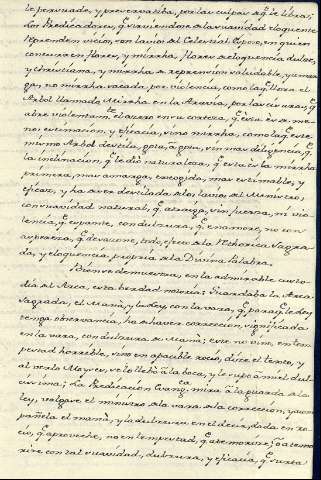 le persuade, y preservativa, por las culpas de q.e le libra;
Los Predicadores, q.e sirviendose de la suavidad eloquente
reprenden vicios, son lavios del Celestial Esposo, en quien
concurren flores, y mirrha, flores de eloquencia dulce,
y christiana, y mirrha de reprension saludable, y amar
ga, no mirrha sacada, por violencia, como la q.e llora el
Arbol llamado Mirrha en la Aravia, por las cisuras, q.e
abre violentam.te el azero en su corteza, q.e esta es de me
nos estimacion, y eficacia, sino mirrha, como la q.e este
mismo Arbol destila, gota, a gota, sin mas diligencia, q.e
la inclinacion, q.e le dio naturaleza, q.e esta es la mirrha
primera, mas amarga, escogida, mas estimable, y
eficaz, y ha de ser destilada de los lavios del Ministro,
con suavidad natural, q.e atraiga, sin fuerza, ni vio
lencia, q.e espante, con dulzura, q.e enamore, no con
aspereza, q.e desazone, todo efecto de la Rethorica Sagra
da, y eloquencia, propria de la Divina Palabra.
Bien se demuestra, en la admirable custo
dia del Arca, esta verdad notoria; Guardaba la Arca
Sagrada, el Manà, y la Ley, con la vara, q.e para q.e la Ley
tenga observancia, ha de haver correccion, significada
en la vara, con dulzura de Manà; este no vino, en tem
pestad horrible, sino en apacible rocio, dice el texto, y
al verlo Moyses, se le llegò à la boca, y le supo à miel dul
cissima; La Predicacion Evang.ca mira à la guarda de la
ley, valgase el ministro de la vara de la correccion, y acom
pañela el manà, y la dulzura en el decir, dada en ro
cio, q.e aproveche, no en tempestad, q.e atemorize; ò atemo
rize con tal suavidad, dulzura, y eficacia, q.e